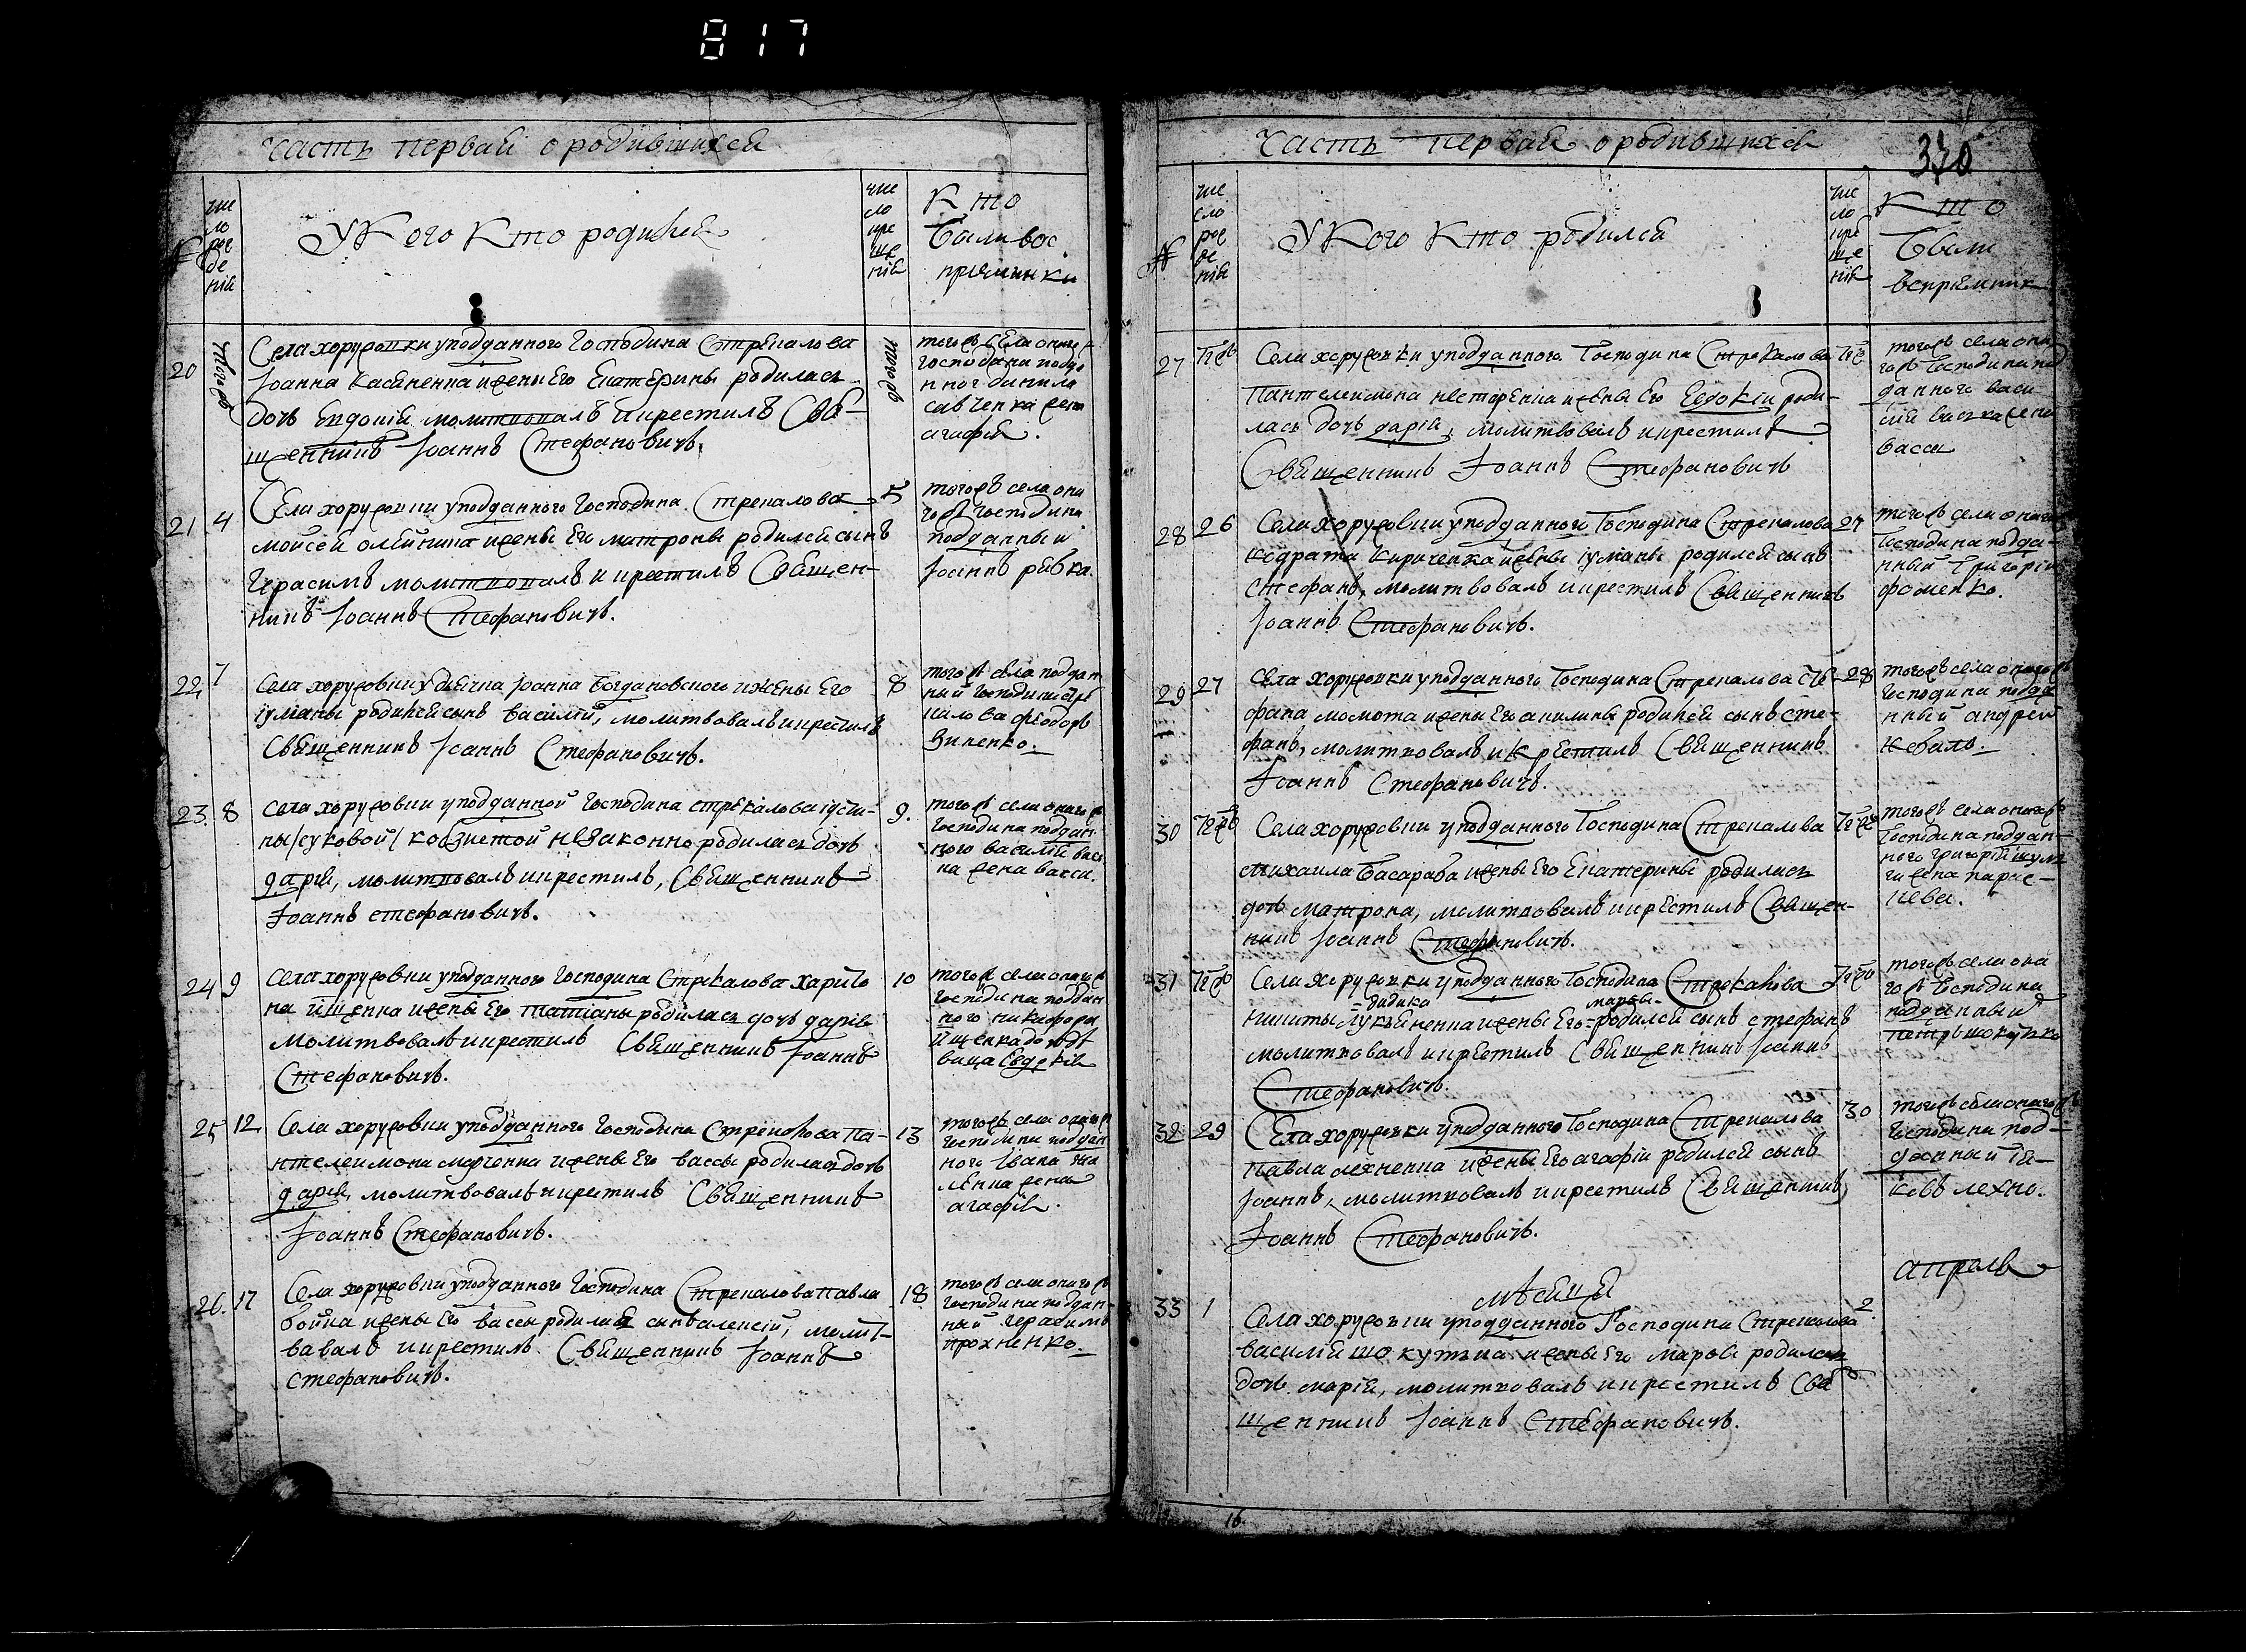 817
Часть первая о родившихся
№
чис
ло
рож
де
нія
У Кого Кто родился
чис
ло
кре
ще
нія
Кто
Были вос
приемники
20
тогожъ
Села хоружовки уподданного Господина Стрекалова
Іоанна Касяненка и жены Его Екатерины родилась
дочь Евдокія молитвовалъ и крестилъ Свя-
щенникъ Іоаннъ Стефановичъ.
тогожъ
тогожъ села
господина
савченка жена
агафія.
21
4
Села хоружовки уподданного Господина Стрекалова
моисея олейника и жены Его матроны родился сынъ
Герасимъ молитвовалъ и крестилъ Священ-
никъ Іоаннъ Стефановичъ.
5
тогожъ села она
гожъ господина
подданный
Іоаннъ рябка.
22
7
Села хоружовки у дьячка Іоанна Богдановского и жены Его
іуліаны родился сынъ василій, молитвовалъ и крестилъ
Священникъ Іоаннъ Стефановичъ.
8
тогожъ села поддан
ный господина стре
калова феодоръ
Зиненко.
23.
8
Села хоружовки уподданной господина стрекалова іусти-
ны /жуковой/ незаконно родилась дочь
дарія, молитвовалъ и крестилъ, Священникъ
Іоаннъ стефановичъ.
9.
тогожъ села оногожъ
Господина поддан-
ного василія
жена васса.
24
9
Села хоружовки уподданного господина Стрекалова харито
на йщенка и жены Его татіаны родилась дочь дарія
молитвовалъ и крестилъ Священникъ Іоаннъ
Стефановичъ.
10
тогожъ села оногожъ
господина поддан
ного никифора
йщенка
вица Евдокія
25
12
Села хоружовки уподданного Господина Стрекалова Па-
нтелеимона марченка и жены Его вассы родилась дочь
дарія, молитвовалъ и крестилъ Священникъ
Іоаннъ Стефановичъ.
13
тогожъ села оногожъ
господина поддан
ного Ивана
жена
агафія.
26.
17
Села хоружовки уподданного Господина Стрекалова павла
бойка и жены Его вассы родился сынъ алексій, молит-
вовалъ и крестилъ Священникъ Іоаннъ
стефановичъ.
18
тогожъ села оногожъ
господина поддан-
ный герасимъ
прохненко.
Часть первая о родившихся
370
№
чис
сло
рож
де
нія
У Кого Кто родился
чис
ло
кре
ще
нія
Кто
Были
воспріемник
27
Села хоружовки уподданного Господина Стрекалова
Пантелеимона нестеренка и жены Его Евдокіи роди-
лась дочь дарія, молитвовалъ и крестилъ
Священникъ Іоаннъ Стефановичъ
тогожъ села она
гожъ Господина под
данного васи
лія жена
васса
28
26
Села хоружовки уподданного Господина Стрекалова
кодрата кириченка и жены іуліаны родился сынъ
стефанъ, молитвовалъ и крестилъ Священникъ
Іоаннъ Стефановичъ.
27
тогожъ села оногожъ
Господина подда-
нный Григорій
фоменко.
29
27
Села хоружовки уподданного Господина Стрекалова сте-
фана момота и жены Его акилины родился сынъ сте-
фанъ, молитвовалъ и крестилъ Священникъ
Іоаннъ Стефановичъ.
28
тогожъ села оногожъ
Господина подда
нный андрей
30
Села хоружовки уподданного Господина Стрекалова
михаила Басараба и жены Его Екатерины родилась
дочь матрона, молитвовалъ и крестилъ Священ-
никъ Іоаннъ Стефановичъ.
тогожъ села оногожъ
Господина поддан-
ного григорія
жена парас-
кева.
31
Села хоружовки уподданного Господина Стрекалова
дидика марфы
никиты Лукьяненка и жены Его родился сынъ стефанъ
молитвовалъ и крестилъ Священникъ Іоаннъ
Стефановичъ.
тогожъ села она
гожъ Господина
подданный
петръ шокутко
32
29
Села хоружовки уподданного Господина Стрекалова
павла лехненка и жены Его агафіи родился сынъ
Іоаннъ, молитвовалъ и крестилъ Священникъ
Іоаннъ Стефановичъ.
30
тогожъ села оногожъ
Господина под-
данный Їа-
ковъ лехно.
мѣсяца
апреля
33
1
Села хоружовки уподданного Господина Стрекалова
василія шокутка и жены Его марфы родилась
дочь марія, молитвовалъ и крестилъ Свя
щенникъ Іоаннъ Стефановичъ.
2
16